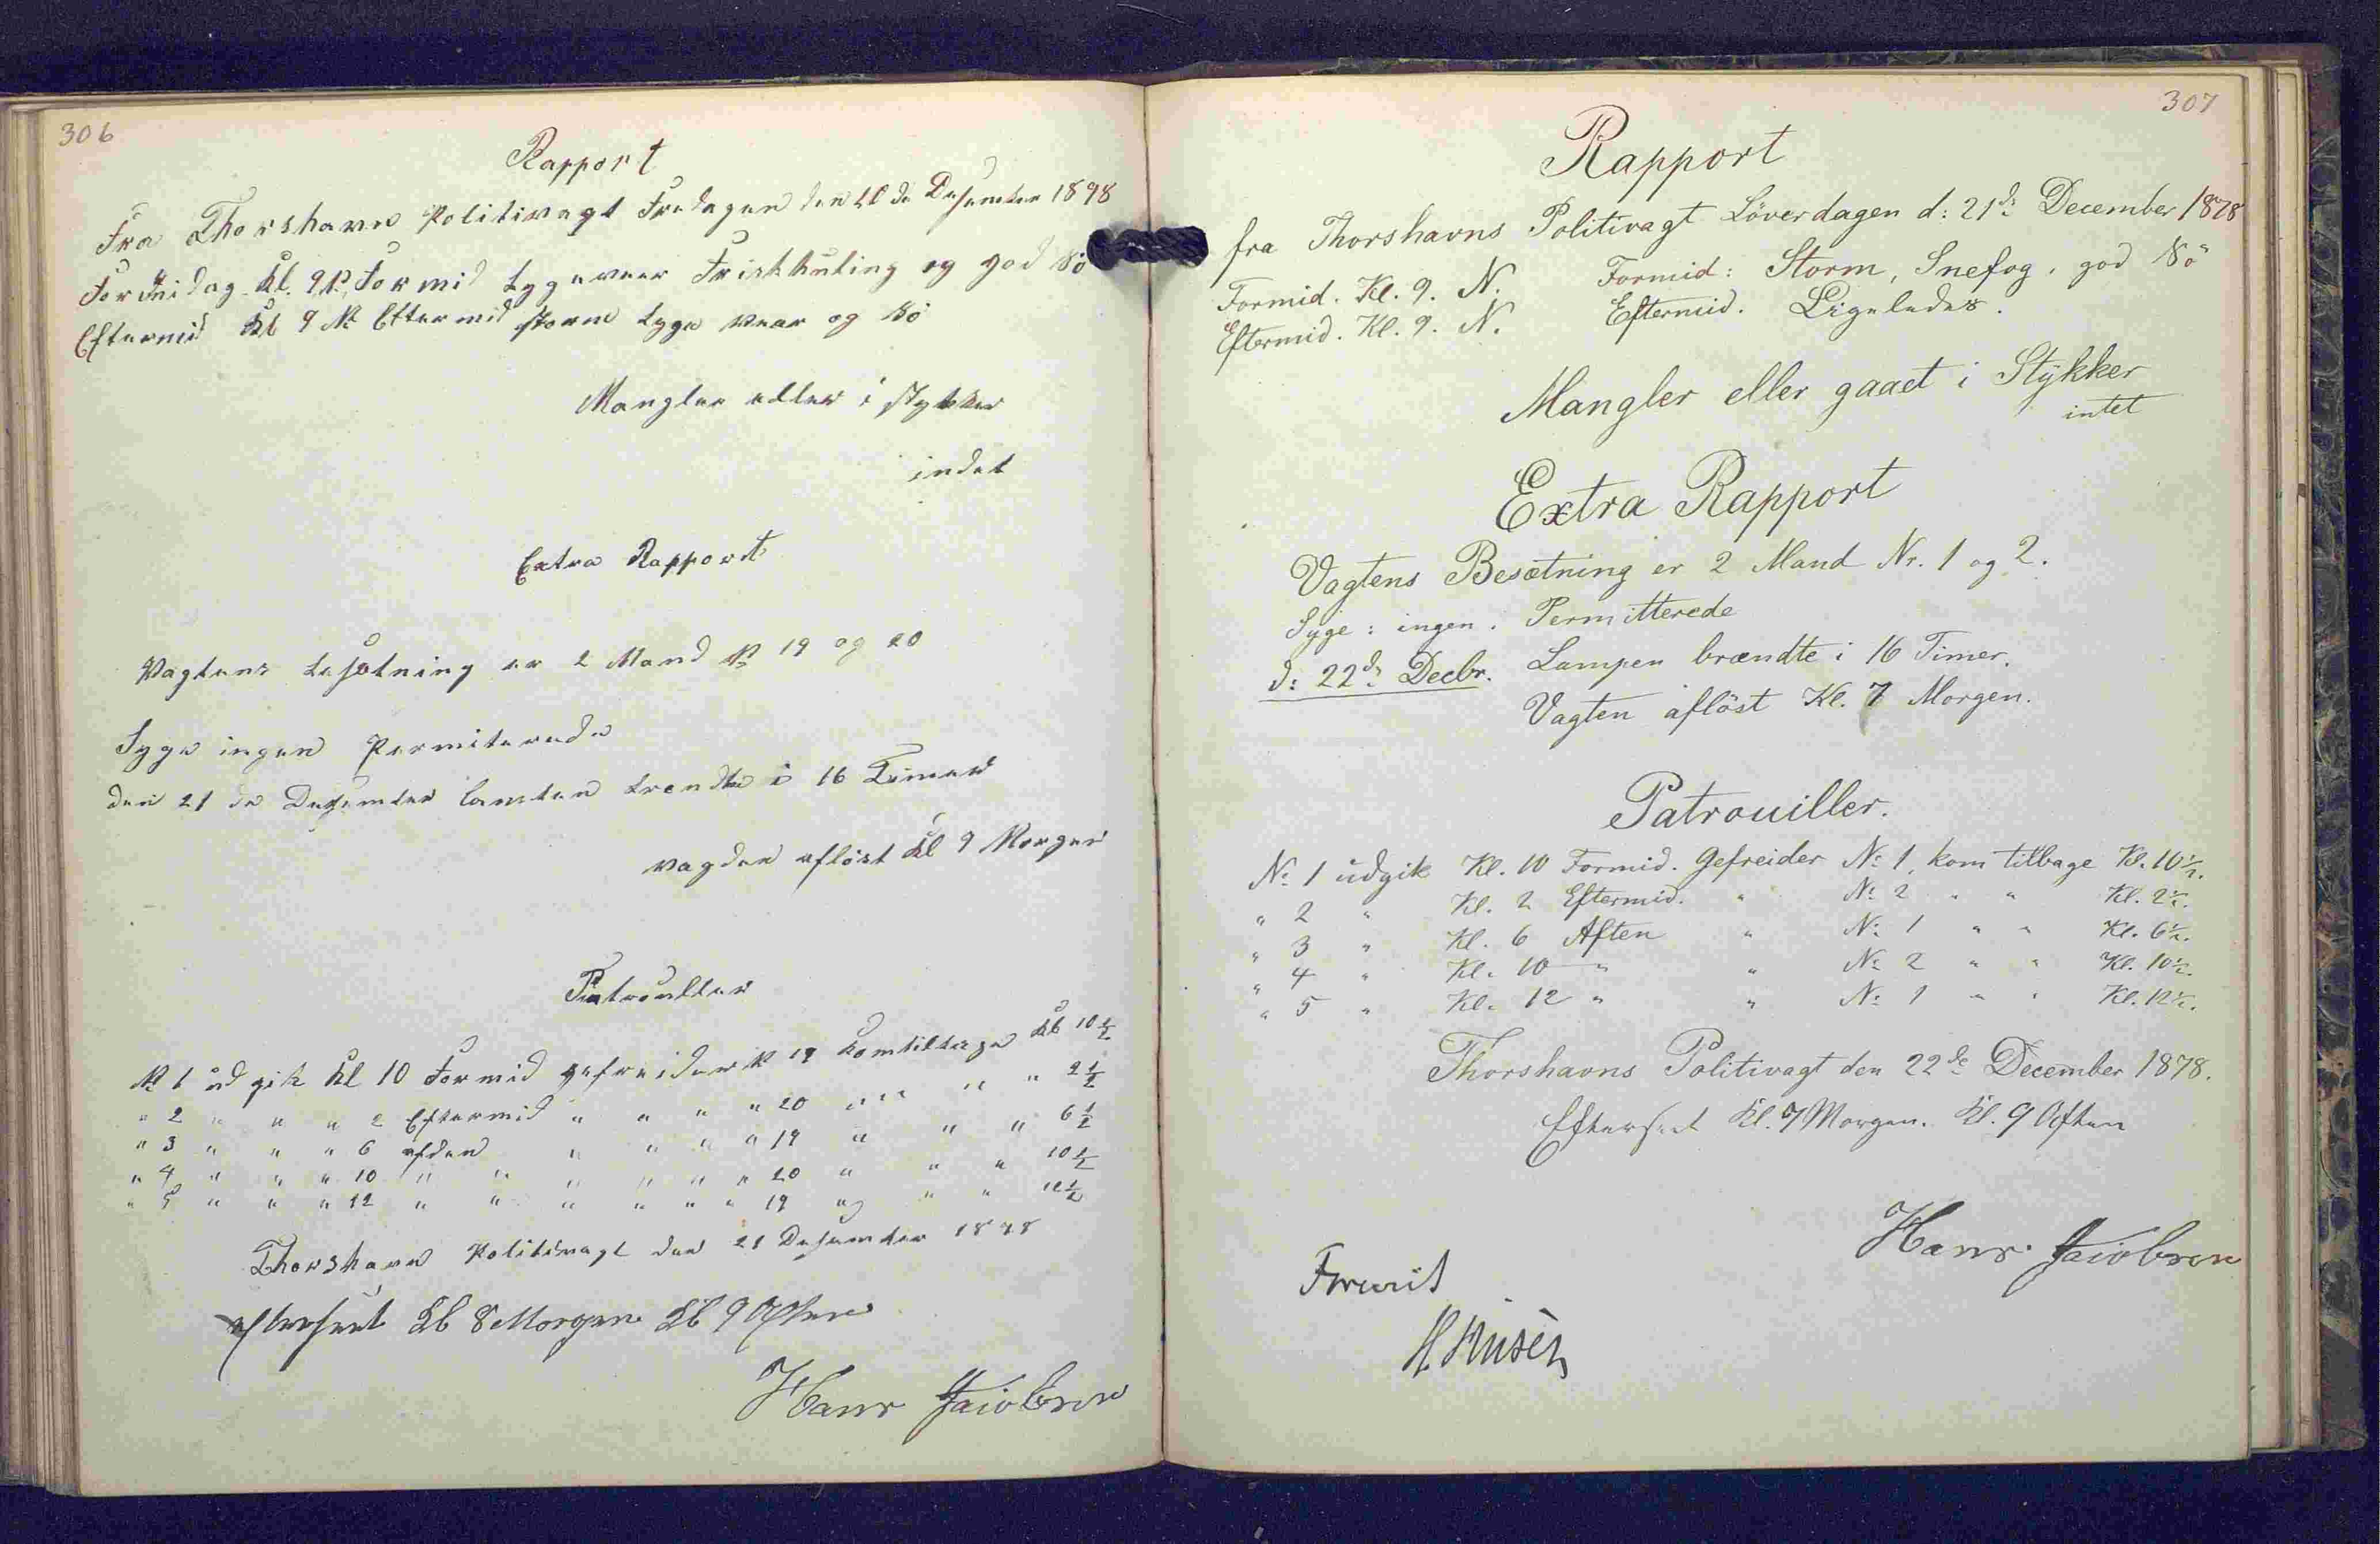 306
Rapport
Fra Thorshavns Politivagt Fredagen den 20 de Desember 1878
Formidag Kl. 9 N. Formid bygeveer Friskkuling og god Sö
Eftermid Kl 9 N Eftermid storm byge veer og Sö
Mangler eller i stykker
indet
Extra Rapport
Vagtens besetning er 2 Mand N 19 og 20
Syge ingen Permiterede
den 21 de Desember lamben brendte i 16 Timer
vagden aflöst Kl 9 Morgen
Patrouller
N 1 udgik Kl 10 Formid gefreider N 19 kom tilbage Kl 10 1/2
" 2 " " " 2 Eftermid " " " " 20 " " " " 2 1/2
" 3 " " " 6 afden " " " " 19 " " " 6 1/2
" 4 " " " 10 " " " " " " 20 " " " 10 1/2
" 5 " " " 12 " " " " " " 19 " " " 12 1/2
Thorshavns Politivagt den 21 Desember 1878
efterseet Kl 8 Morgen Kl 9 Aften
Hans Jacobsen
307
Rapport
fra Thorshavns Politivagt Löverdagen d: 21de December 1878
Formid. Kl. 9. N. Formid: Storm, Snefog, god Sö
Eftermid. Kl. 9. N. Eftermid. Ligeledes.
Mangler eller gaaet i Stykker
intet
Extra Rapport
Vagtens Besætning er 2 Mand Nr. 1 og 2.
Syge: ingen. Permitterede
d: 22de Decbr. Lampen brændte i 16 Timer.
Vagten aflöst Kl. 7 Morgen.
Patrouiller.
No 1 udgik Kl. 10 Formid. Gefreider No 1, kom tilbage Kl. 10 1/2.
" 2 " Kl. 2 Eftermid. " No 2 " " Kl. 2 1/2.
" 3 " Kl. 6 Aften " No 1 " " Kl. 6 1/2.
" 4 " Kl. 10 " " No 2 " " Kl. 10 1/2.
" 5 " Kl. 12 " " No 1 " " Kl. 12 1/2.
Thorshavns Politivagt den 22de December 1878.
Efterseet Kl. 7 Morgen. Kl. 9 Aften
Hans Jacobsen